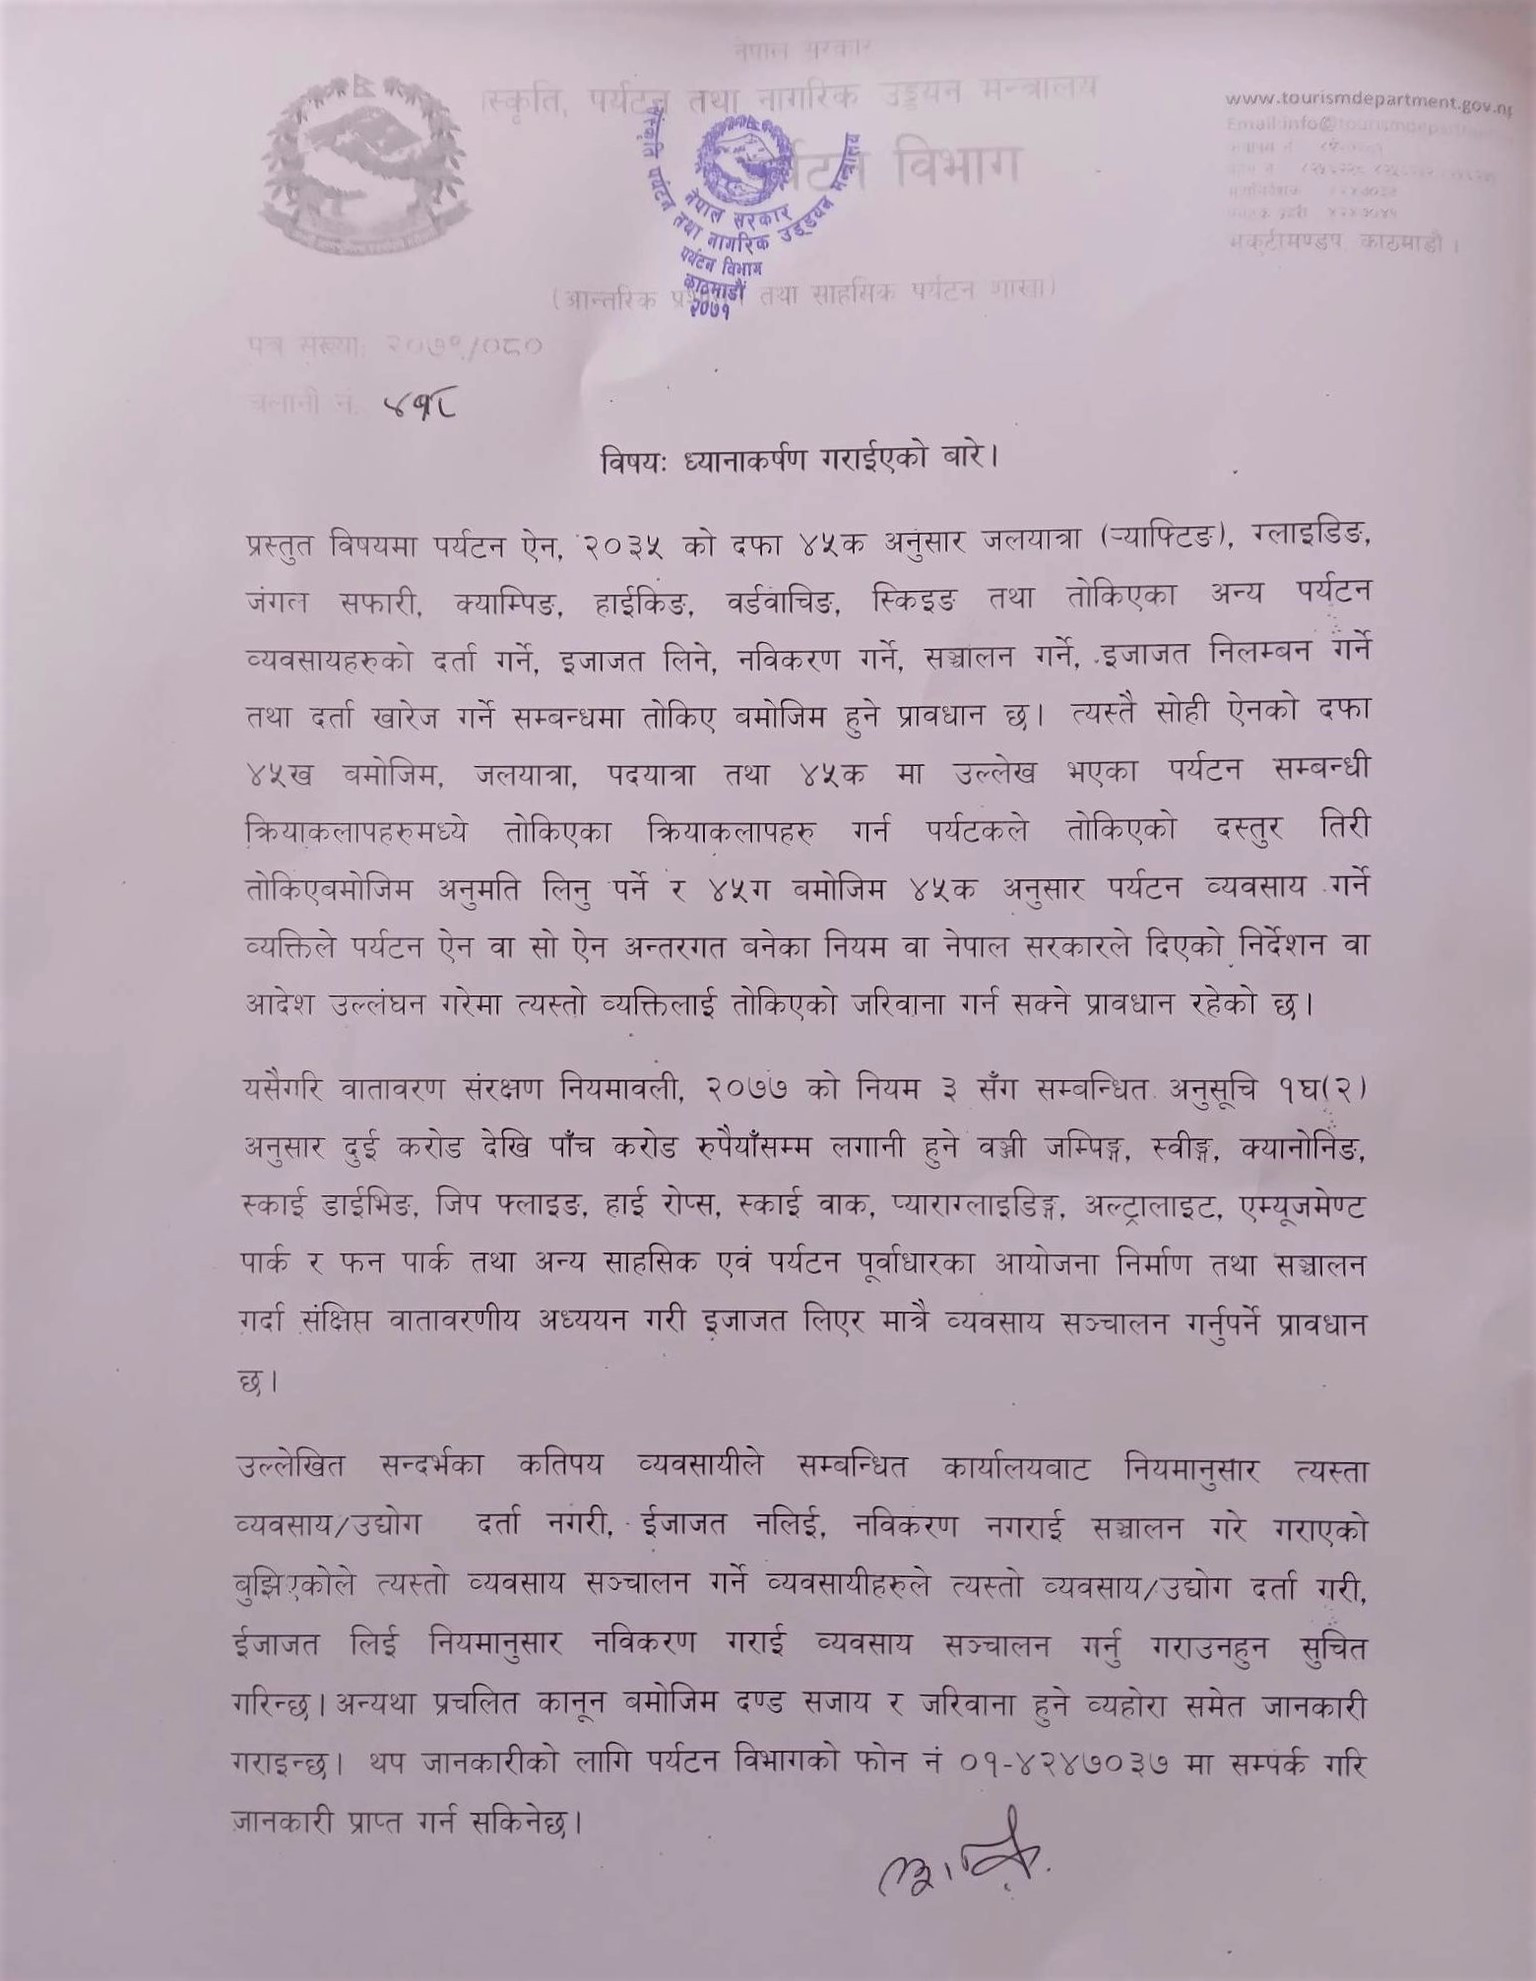 नेपाल सरकार
स्कृति, पर्यटन तथा नागरिक उड्डयन मन्त्रालय
र्यटन विभाग
www.tourismdepartment.gov.np
Email:info@tourismdepartment
भृकुटीमण्डप, काठमाडौं।
नेपाल सरकार
संस्कृति पर्यटन तथा नागरिक उड्डयन मन्त्रालय
पर्यटन विभाग
काठमाडौं
२०७१
(आन्तरिक तथा साहसिक पर्यटन शाखा)
पत्र संख्या: २०७९/०८०
चलानी नं. ४१८
विषयः ध्यानाकर्षण गराईएको बारे।
प्रस्तुत विषयमा पर्यटन ऐन, २०३५ को दफा ४५क अनुसार जलयात्रा (र्‍याफ्टिङ), ग्लाइडिङ,
जंगल सफारी, क्याम्पिङ, हाईकिङ, वर्डवाचिङ, स्किइङ तथा तोकिएका अन्य पर्यटन
व्यवसायहरुको दर्ता गर्ने, इजाजत लिने, नविकरण गर्ने, सञ्चालन गर्ने, इजाजत निलम्बन गर्ने
तथा दर्ता खारेज गर्ने सम्बन्धमा तोकिए बमोजिम हुने प्रावधान छ। त्यस्तै सोही ऐनको दफा
४५ख बमोजिम, जलयात्रा, पदयात्रा तथा ४५क मा उल्लेख भएका पर्यटन सम्बन्धी
क्रियाकलापहरुमध्ये तोकिएका क्रियाकलापहरु गर्न पर्यटकले तोकिएको दस्तुर तिरी
तोकिएबमोजिम अनुमति लिनु पर्ने र ४५ग बमोजिम ४५क अनुसार पर्यटन व्यवसाय गर्ने
व्यक्तिले पर्यटन ऐन वा सो ऐन अन्तरगत बनेका नियम वा नेपाल सरकारले दिएको निर्देशन वा
आदेश उल्लंघन गरेमा त्यस्तो व्यक्तिलाई तोकिएको जरिवाना गर्न सक्ने प्रावधान रहेको छ।
यसैगरि वातावरण संरक्षण नियमावली, २०७७ को नियम ३ सँग सम्बन्धित अनुसूचि १घ(२)
अनुसार दुई करोड देखि पाँच करोड रुपैयाँसम्म लगानी हुने वञ्जी जम्पिङ्ग, स्वीङ्ग, क्यानोनिङ,
स्काई डाईभिङ, जिप फ्लाइङ, हाई रोप्स, स्काई वाक, प्याराग्लाइडिङ्ग, अल्ट्रालाइट, एम्यूजमेण्ट
पार्क र फन पार्क तथा अन्य साहसिक एवं पर्यटन पूर्वाधारका आयोजना निर्माण तथा सञ्चालन
गर्दा संक्षिप्त वातावरणीय अध्ययन गरी इजाजत लिएर मात्रै व्यवसाय सञ्चालन गर्नुपर्ने प्रावधान
छ।
उल्लेखित सन्दर्भका कतिपय व्यवसायीले सम्बन्धित कार्यालयवाट नियमानुसार त्यस्ता
व्यवसाय/उद्योग दर्ता नगरी, ईजाजत नलिई, नविकरण नगराई सञ्चालन गरे गराएको
बुझिएकोले त्यस्तो व्यवसाय सञ्चालन गर्ने व्यवसायीहरुले त्यस्तो व्यवसाय/उद्योग दर्ता गरी,
ईजाजत लिई नियमानुसार नविकरण गराई व्यवसाय सञ्चालन गर्नु गराउनहुन सुचित
गरिन्छ। अन्यथा प्रचलित कानून बमोजिम दण्ड सजाय र जरिवाना हुने व्यहोरा समेत जानकारी
गराइन्छ। थप जानकारीको लागि पर्यटन विभागको फोन नं ०१-४२४७०३७ मा सम्पर्क गरि
जानकारी प्राप्त गर्न सकिनेछ।